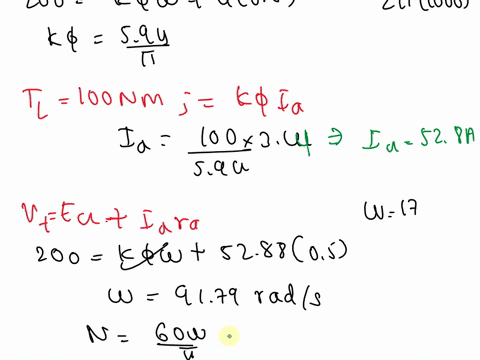 Kφ = 5.94/π
T_L = 100Nm ; = Kφ I_a
I_a = 100 × 3.14/5.94 ⇒ I_a = 52.8A
V_t = Ea + I_a ra
W = 17
200 = kφω + 52.88 (0.5)
ω = 91.79 rad/s
N = 60ω